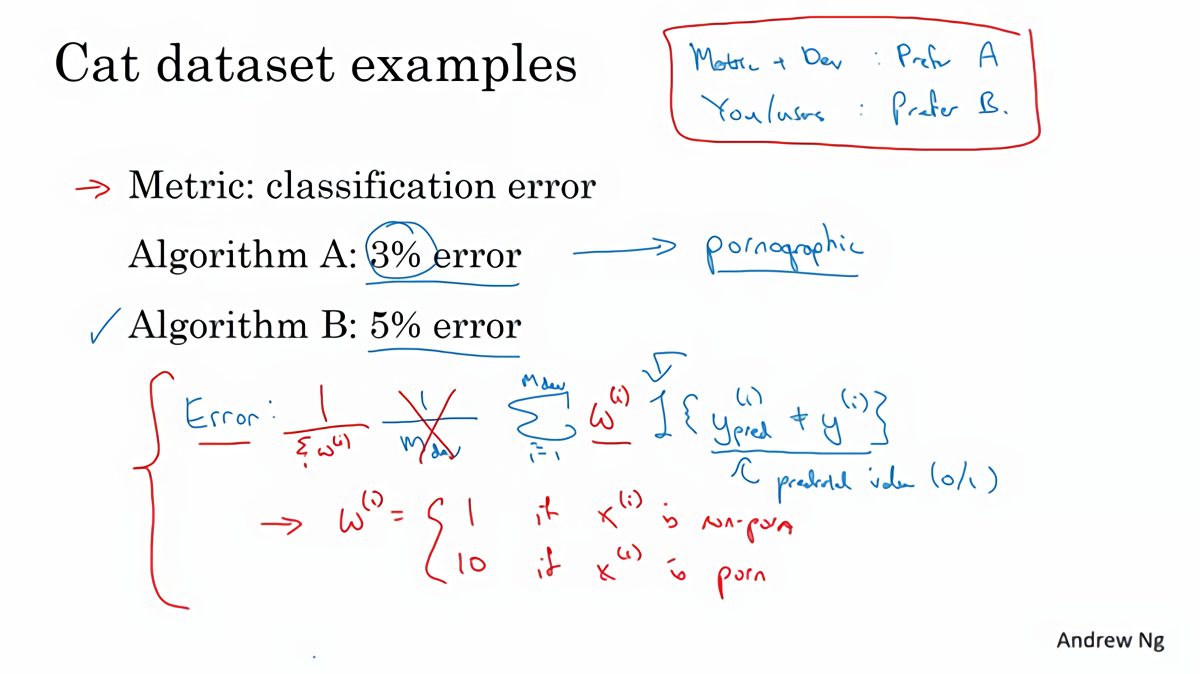 Cat dataset examples
Metric + Dev : Prefer A
You/users : Prefer B.
→ Metric: classification error
Algorithm A: 3% error → pornographic
✓ Algorithm B: 5% error
Error: 1/Σw^(i) 1/m_dev Σ_{i=1}^{m_dev} w^(i) 1{y_pred^(i) ≠ y^(i)}
predicted value (0/1)
→ w^(i) = { 1 if x^(i) is non-porn
10 if x^(i) is porn
Andrew Ng